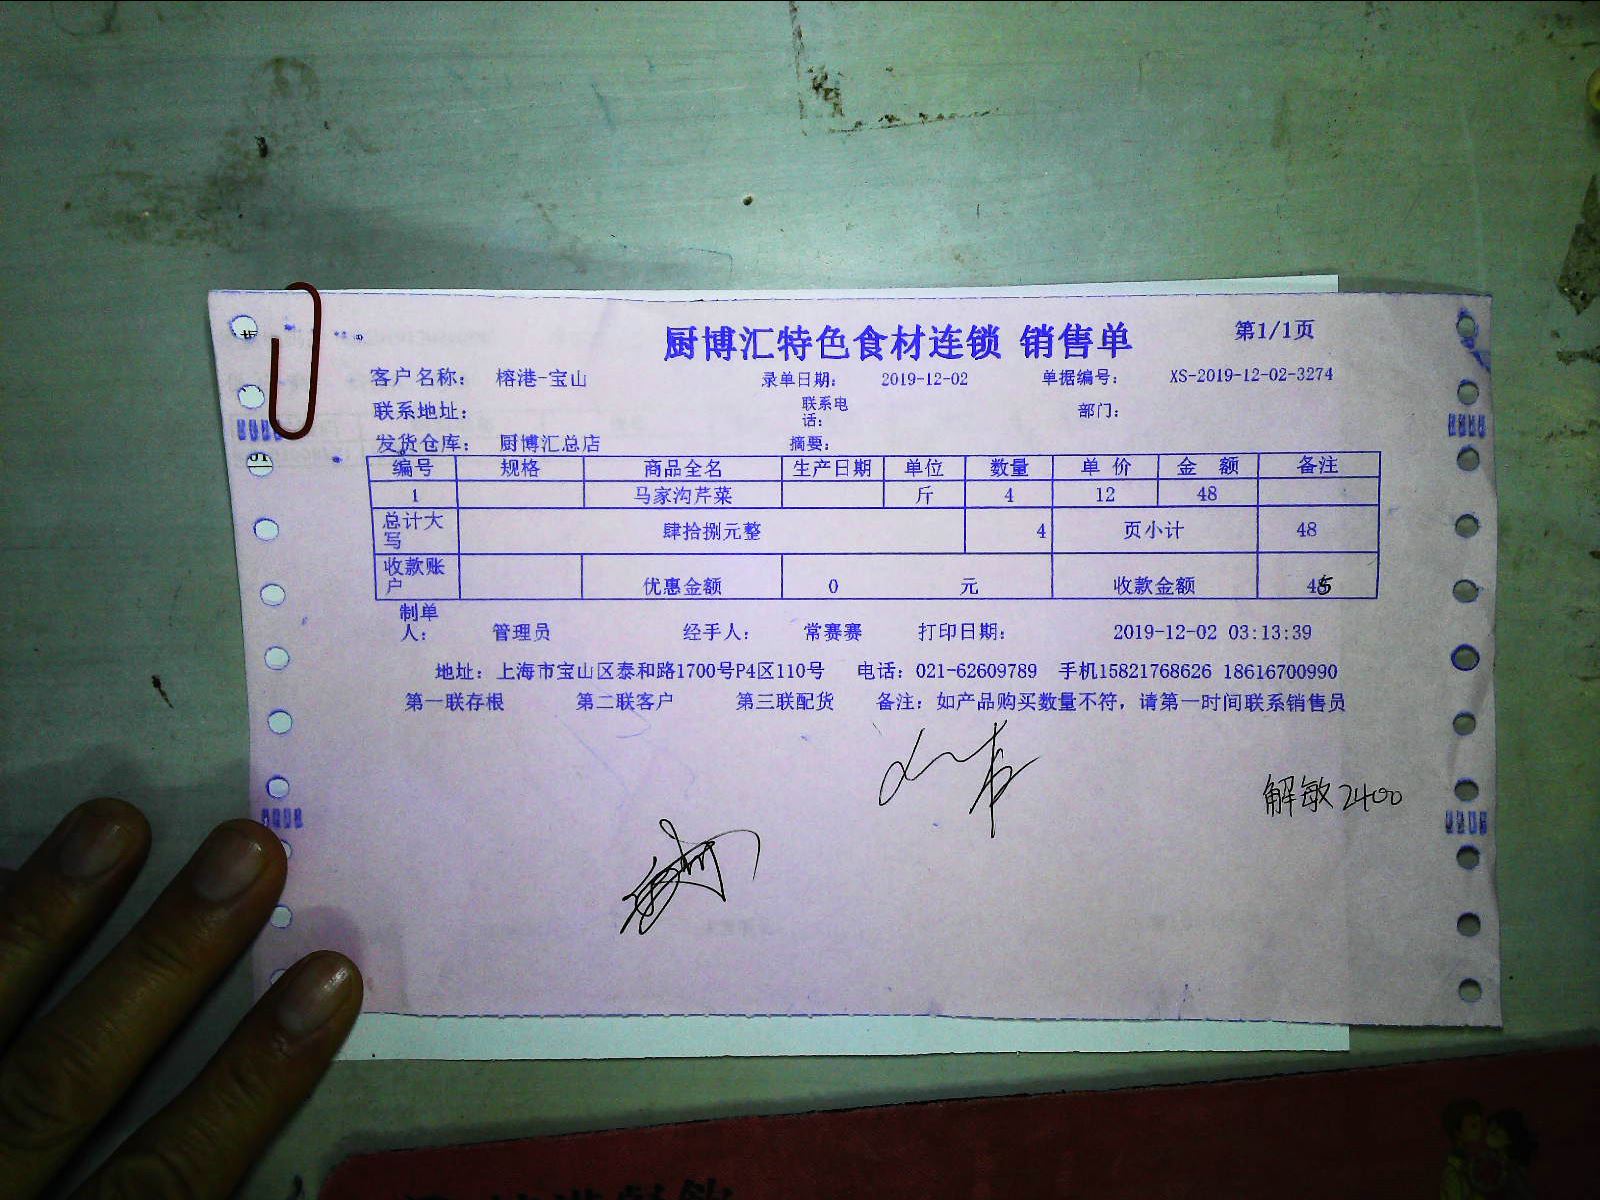 厨博汇特色食材连锁 销售单 第1/1页
客户名称： 榕港-宝山 录单日期： 2019-12-02 单据编号： XS-2019-12-02-3274
联系地址： 联系电话： 部门：
发货仓库： 厨博汇总店 摘要：
编号 规格 商品全名 生产日期 单位 数量 单 价 金 额 备注
1 马家沟芹菜 斤 4 12 48
总计大写 肆拾捌元整 4 页小计 48
收款账户 优惠金额 0 元 收款金额 45
制单人： 管理员 经手人： 常赛赛 打印日期： 2019-12-02 03:13:39
地址：上海市宝山区泰和路1700号P4区110号 电话：021-62609789 手机15821768626 18616700990
第一联存根 第二联客户 第三联配货 备注：如产品购买数量不符，请第一时间联系销售员
解敏2400